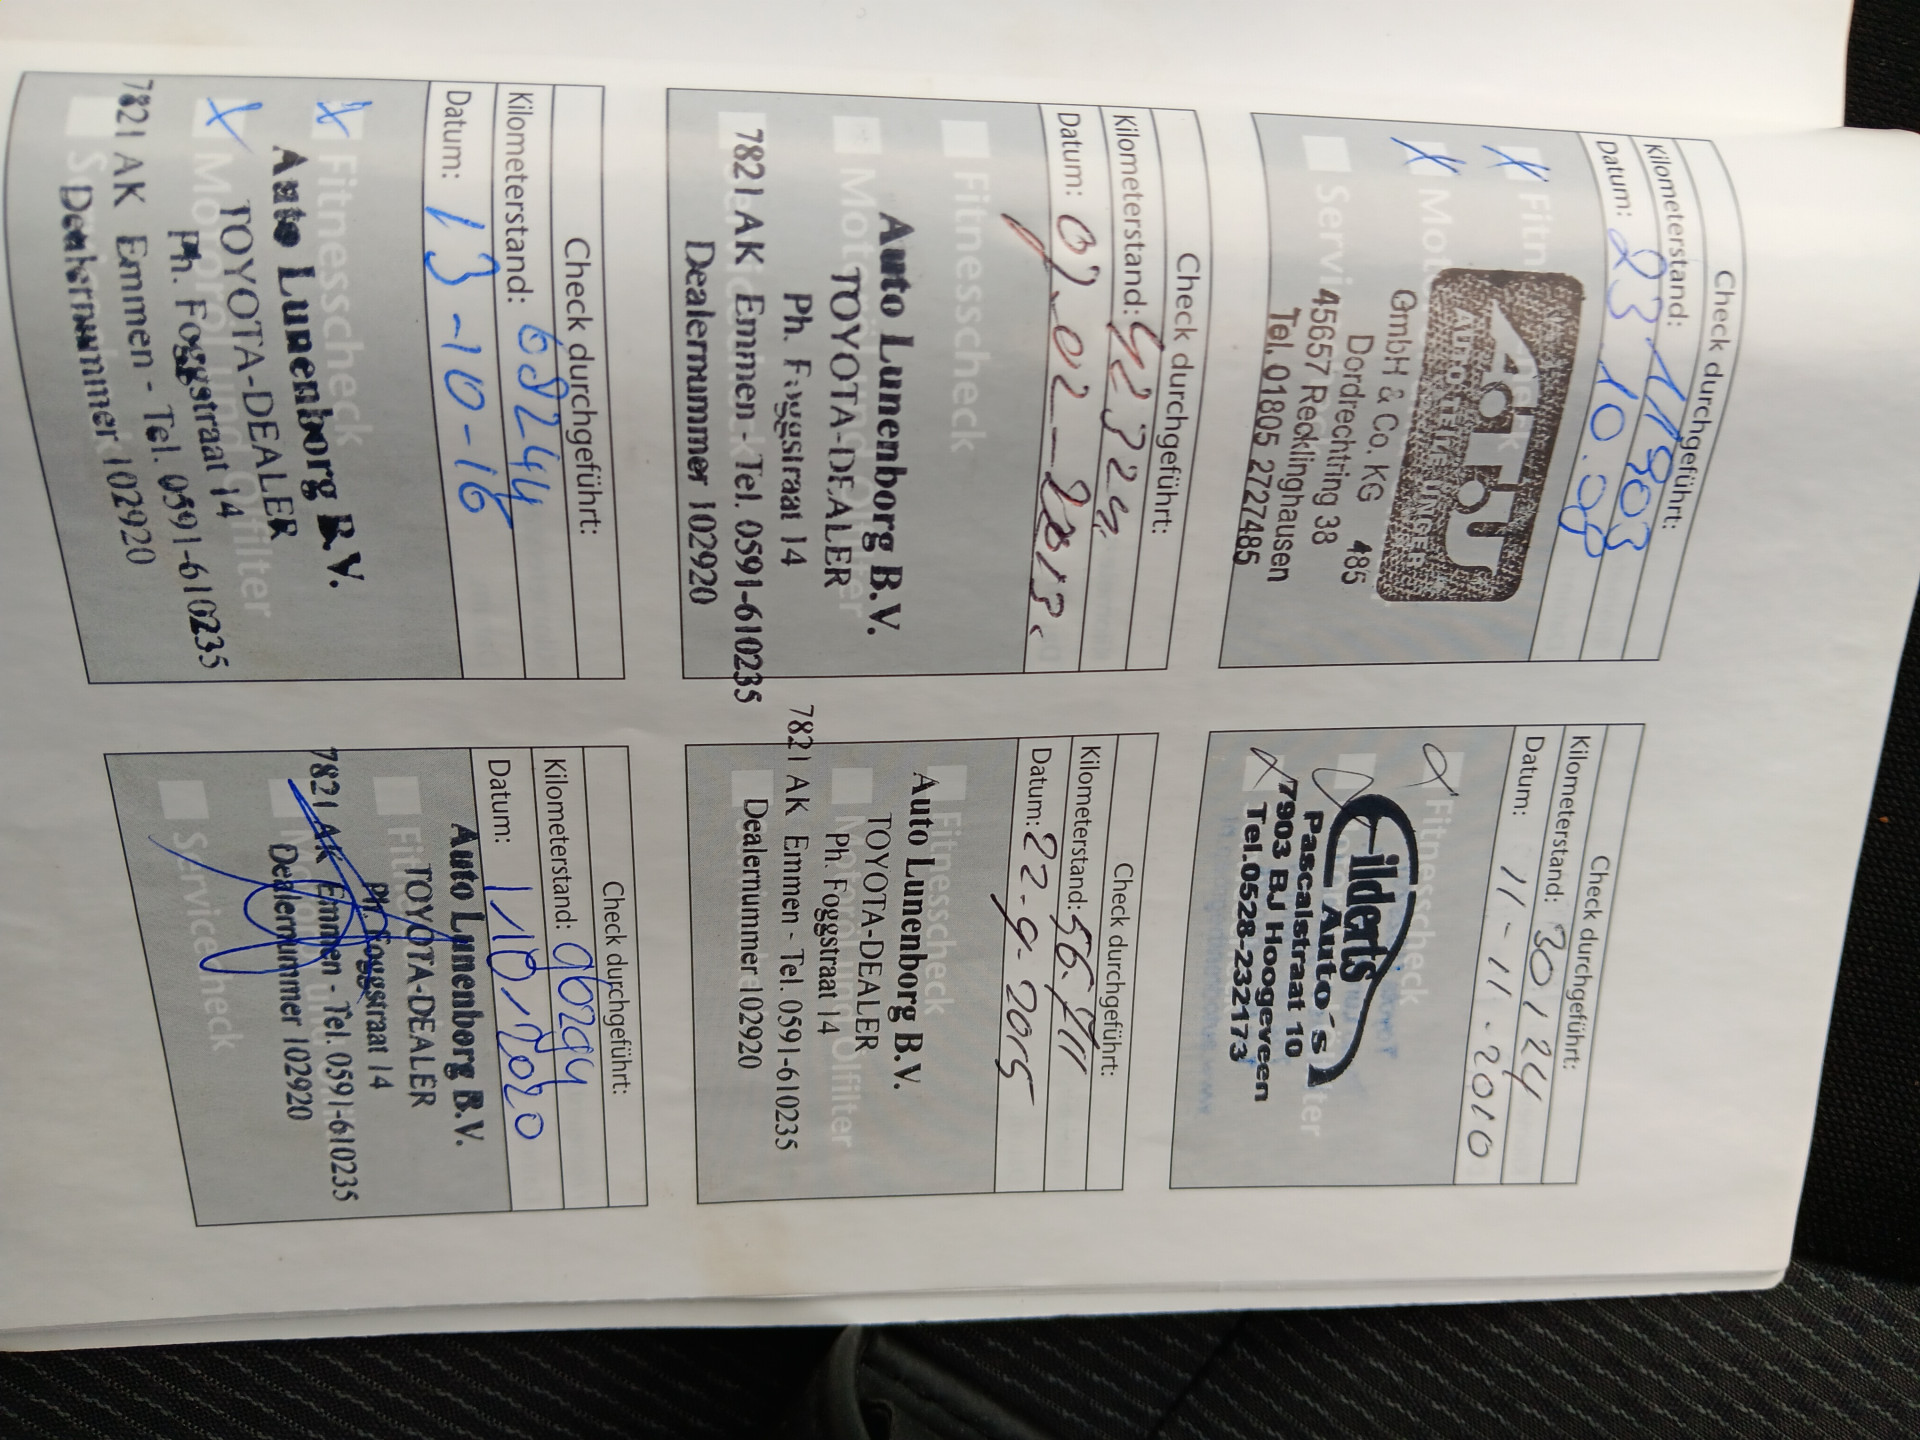 Check durchgeführt:
Kilometerstand: 11903
Datum: 23 10.08
Fitn
Mot
Servi
A.T.U
AUTO
GmbH & Co. KG 485
Dordrechtring 38
45657 Recklinghausen
Tel. 01805 2727485
Check durchgeführt:
Kilometerstand: 30124
Datum: 11-11-2010
Fitnesscheck
ilderts
Auto's
Pascalstraat 10
7903 BJ Hoogeveen
Tel.0528-232173
Check durchgeführt:
Kilometerstand: 42324
Datum: 07-02-2013.
Fitnesscheck
Auto Lunenborg B.V.
TOYOTA-DEALER
Ph. Foggstraat 14
7821 AK Emmen - Tel. 0591-610235
Dealernummer 102920
Check durchgeführt:
Kilometerstand: 56.711
Datum: 22-9-2015
Fitnesscheck
Motoröl und Ölfilter
Auto Lunenborg B.V.
TOYOTA-DEALER
Ph. Foggstraat 14
7821 AK Emmen - Tel. 0591-610235
Dealernummer 102920
Check durchgeführt:
Kilometerstand: 69244
Datum: 13-10-16
Fitnesscheck
Motoröl und Ölfilter
Auto Lunenborg B.V.
TOYOTA-DEALER
Ph. Foggstraat 14
7821 AK Emmen - Tel. 0591-610235
Dealernummer 102920
Check durchgeführt:
Kilometerstand: 96299
Datum: 1/10/2020
Auto Lunenborg B.V.
TOYOTA-DEALER
Ph. Foggstraat 14
7821 AK Emmen - Tel. 0591-610235
Dealernummer 102920
Servicecheck